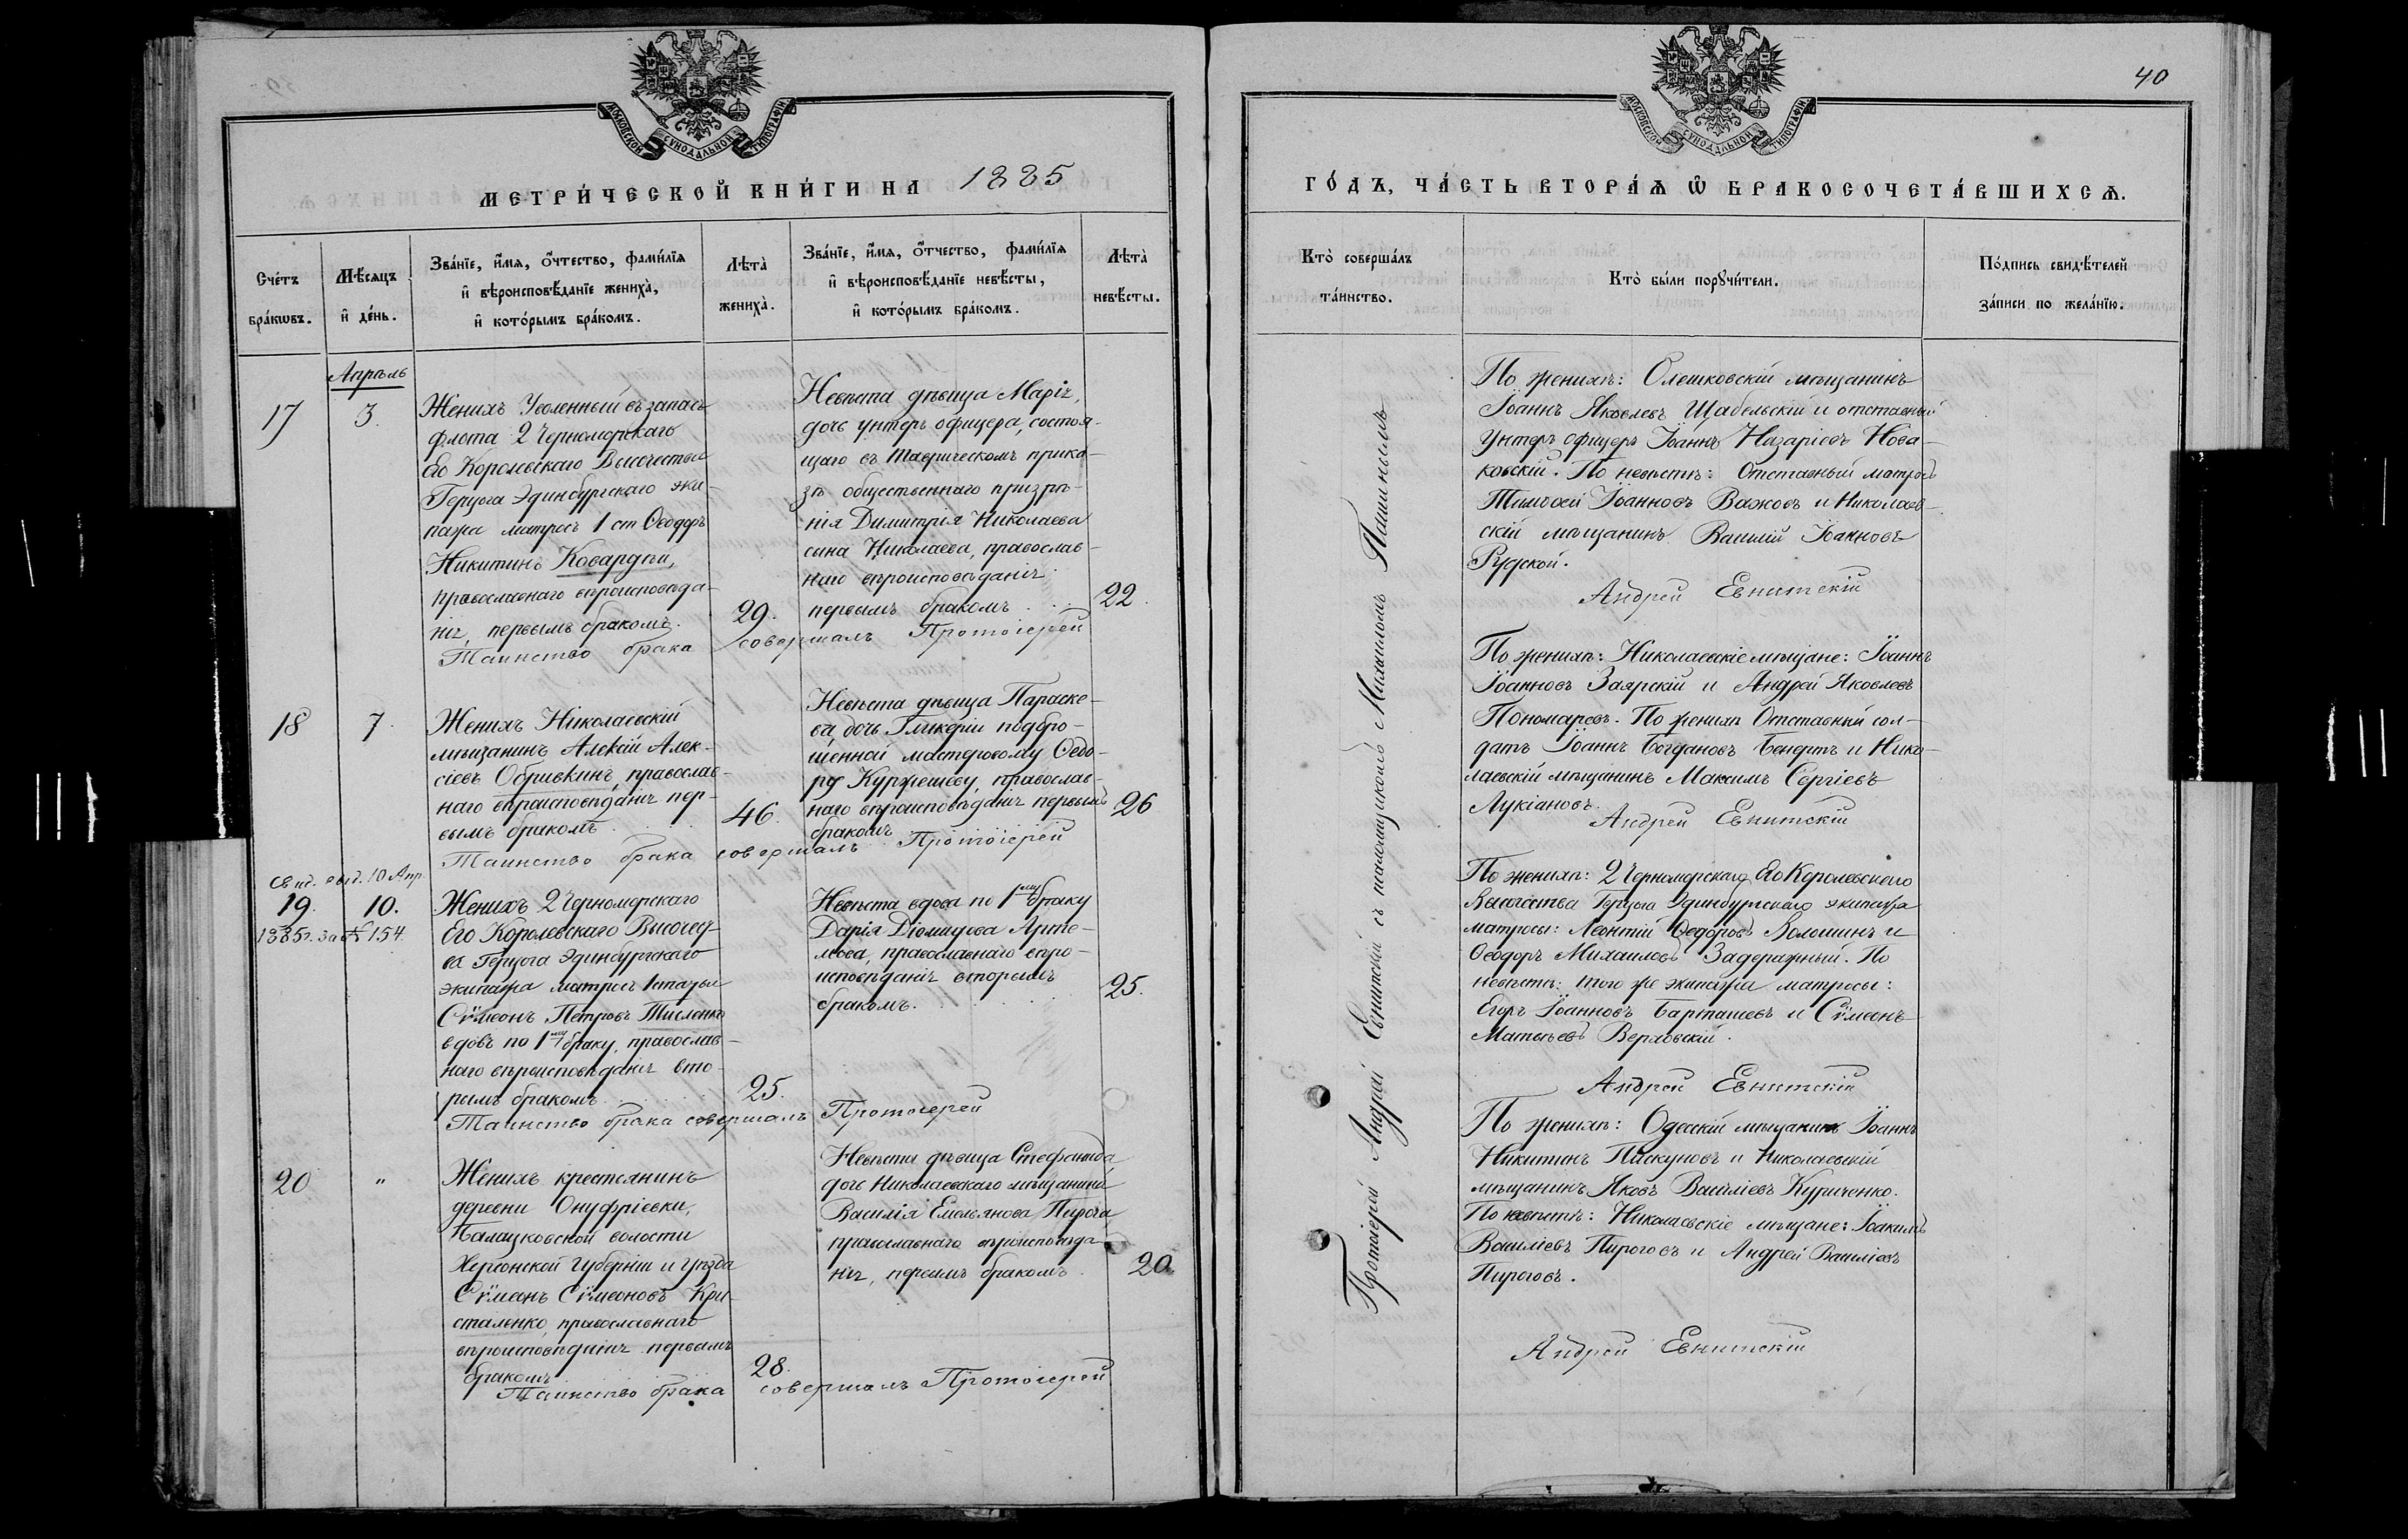 40
МОСКОВСКОЙ СѴНОДАЛЬНОЙ ТИПОГРАФІИ
МЕТРИ́ЧЕСКОЙ КНИ́ГИ НА 1885
Сче́тъ бра́кѡвъ.
Мѣ́сяцъ и де́нь.
Зва́нїе, и́мя, ѻ́тчество, фами́лїя
и вѣроисповѣ́данїе жениха̀,
и кото́рымъ бра́комъ.
Лѣта̀ жениха̀.
Зва́нїе, и́мя, ѻ́тчество, фами́лїя
и вѣроисповѣ́данїе невѣ́сты,
и кото́рымъ бра́комъ.
Лѣта̀ невѣ́сты.
Апрѣль
17
3.
Женихъ Уволенный въ запасъ
флота 2 Черноморскаго
Его Королевскаго Высочества
Герцога Эдинбургскаго эки-
пажа матросъ 1 ст Ѳеодоръ
Никитинъ Ковардѣй,
православнаго вѣроисповѣда-
нія, первымъ бракомъ.
29.
Невѣста дѣвица Марія,
дочь унтеръ офицера, состоя-
щаго въ Таврическомъ прика-
зѣ общественнаго призрѣ-
нія Димитрія Николаева
сына Николаева, православ-
наго вѣроисповѣданія
первымъ бракомъ
22.
Таинство брака совершалъ Протоіерей
18
7.
Женихъ Николаевскій
мѣщанинъ Алексій Алек-
сіевъ Обривкинъ, православ-
наго вѣроисповѣданія пер-
вымъ бракомъ
46.
Невѣста дѣвица Параске-
ва, дочь Гликеріи подбро-
шенной мастеровому Ѳедо-
ру Куржешеву, православ-
наго вѣроисповѣданія первымъ
бракомъ
26
Таинство брака совершалъ Протоіерей
Свид. выд. 10 Апр.
19.
10.
1885г. за № 154.
Женихъ 2 Черноморскаго
Его Королевскаго Высочест-
ва Герцога Эдинбургскаго
экипажа матросъ 1 статьи
Сѵмеонъ Петровъ Тисленко
вдовъ по 1му браку, православ-
наго вѣроисповѣданія вто-
рымъ бракомъ
25.
Невѣста вдова по 1му браку
Дарія Діомидова Арте-
мова, православнаго вѣро-
исповѣданія вторымъ
бракомъ.
25.
Таинство брака совершалъ Протоіерей
20
"
Женихъ крестьянинъ
деревни Онуфріевки,
Балацковской волости
Херсонской губерніи и уѣзда
Сѵманъ Сѵмеоновъ Кри-
сталенко, православнаго
вѣроисповѣданія первымъ
бракомъ
28.
Невѣста дѣвица Стефанида
дочь Николаевскаго мѣщанина
Василія Емельянова Пирога
православнаго вѣроисповѣда-
нія, первымъ бракомъ
20.
Таинство брака совершалъ Протоіерей
МОСКОВСКОЙ СѴНОДАЛЬНОЙ ТИПОГРАФІИ
ГО́ДЪ, ЧА́СТЬ ВТОРА́Я Ѡ БРАКОСОЧЕТА́ВШИХСЯ.
Кто̀ соверша́лъ та́инство.
Кто̀ бы́ли порꙋчи́тели.
По́дпись свидѣ́телей за́писи по жела́нїю.
Протоіерей Андрей Евнитскій съ псаломщикомъ Михаиломъ Пашинымъ
По женихѣ: Олешковскій мѣщанинъ
Іоаннъ Яковлевъ Щабельскій и отставный
унтеръ офицеръ Іоаннъ Назаріевъ Нова-
ковскій. По невѣстѣ: Отставный матросъ
Тимоѳей Іоанновъ Важовъ и Николаев-
скій мѣщанинъ Василій Іоанновъ
Рудской.
Андрей Евнитскій
По женихѣ: Николаевскіе мѣщане: Іоаннъ
Іоанновъ Заярскій и Андрей Яковлевъ
Пономаревъ. По женихѣ Отставный сол-
датъ Іоаннъ Богдановъ Бендтъ и Нико-
лаевскій мѣщанинъ Максимъ Сергіевъ
Лукіановъ.
Андрей Евнитскій
По женихѣ: 2 Черноморскаго Его Королевскаго
Высочества Герцога Эдинбургскаго экипажа
матросы: Леонтій Ѳедоровъ Волошинъ и
Ѳеодоръ Михаиловъ Задеражный. По
невѣстѣ: того же экипажа матросы:
Егоръ Іоанновъ Барташевъ и Сѵмеонъ
Матвѣевъ Верховскій.
Андрей Евнитскій
По женихѣ: Одесскій мѣщанинъ Іоаннъ
Никитинъ Паскуновъ и Николаевскій
мѣщанинъ Яковъ Василіевъ Куриченко.
По невѣстѣ: Николаевскіе мѣщане: Іоакимъ
Василіевъ Пироговъ и Андрей Василіевъ
Пироговъ.
Андрей Евнитскій